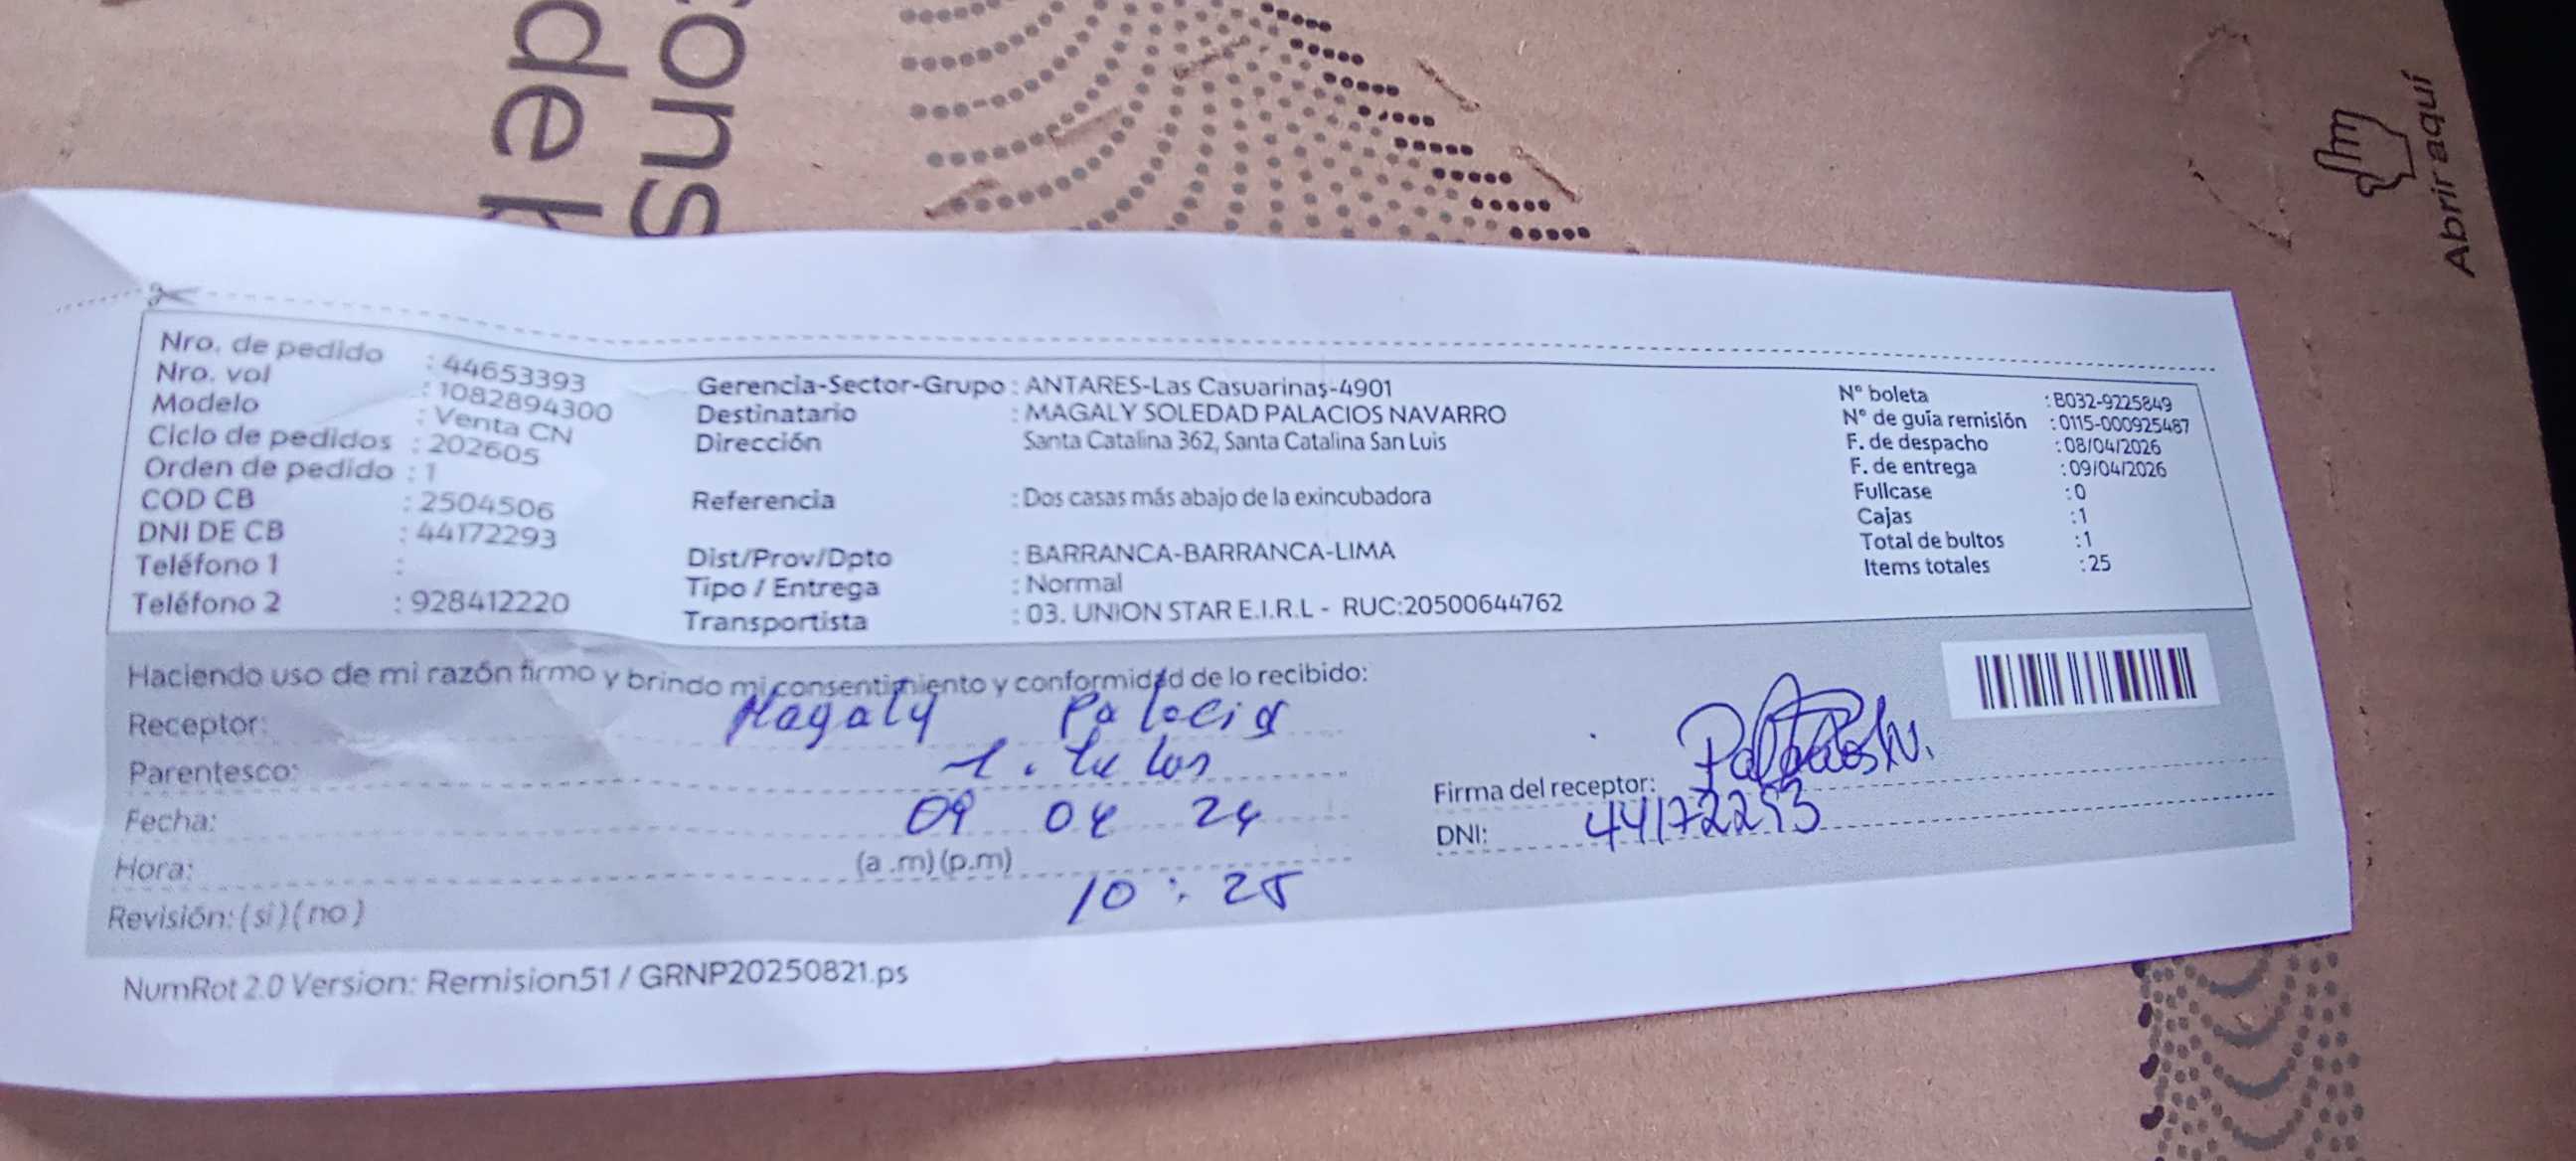 cons
de b
Abrir aquí
Nro. de pedido : 44653393
Nro. vol : 1082894300
Modelo : Venta CN
Ciclo de pedidos : 202605
Orden de pedido : 1
COD CB : 2504506
DNI DE CB : 44172293
Teléfono 1 :
Teléfono 2 : 928412220
Gerencia-Sector-Grupo : ANTARES-Las Casuarinas-4901
Destinatario : MAGALY SOLEDAD PALACIOS NAVARRO
Dirección Santa Catalina 362, Santa Catalina San Luis
Referencia : Dos casas más abajo de la exincubadora
Dist/Prov/Dpto : BARRANCA-BARRANCA-LIMA
Tipo / Entrega : Normal
Transportista : 03. UNION STAR E.I.R.L - RUC:20500644762
N° boleta : B032-9225849
N° de guía remisión : 0115-000925487
F. de despacho : 08/04/2026
F. de entrega : 09/04/2026
Fullcase : 0
Cajas : 1
Total de bultos : 1
Items totales : 25
Haciendo uso de mi razón firmo y brindo mi consentimiento y conformidad de lo recibido:
Receptor: Magaly Palacios
Parentesco:
Fecha: 09 04 24
Hora: (a .m) (p.m) 10 : 25
Revisión: ( si ) ( no )
Firma del receptor:
DNI: 44172293
NumRot 2.0 Version: Remision51 / GRNP20250821.ps